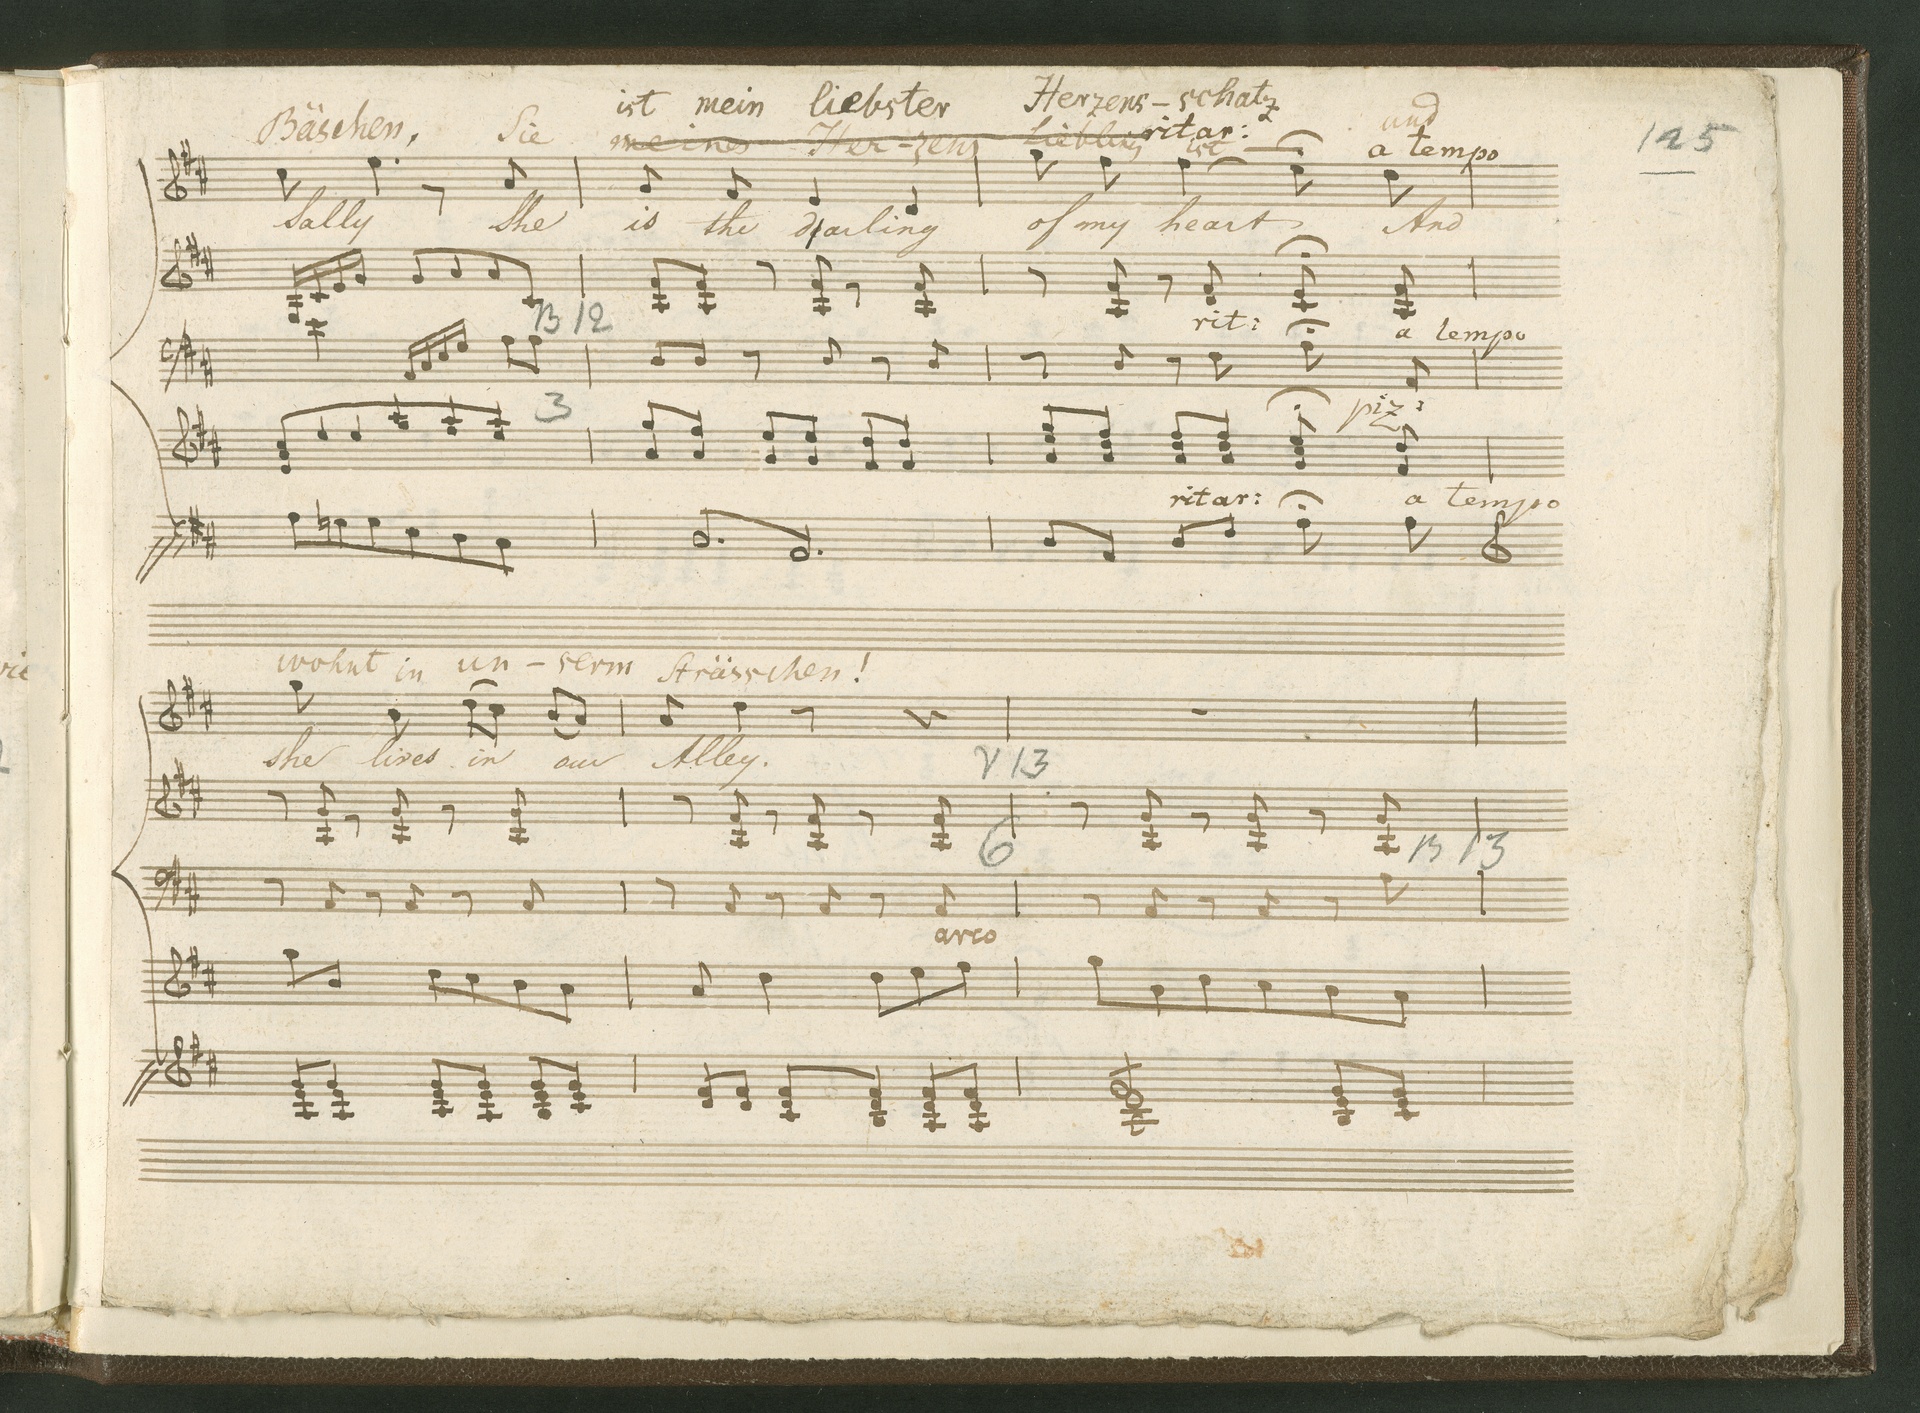 ist mein liebster Herzens-schatz
Bäschen, Sie meines Her-zens Liebling ist ritar: und
a tempo
125
Sally She is the darling of my heart And
B 12
rit: a tempo
3
piz:
ritar: a tempo
wohnt in un-serm Strässchen!
she lives in our Alley.
V 13
6
B 13
arco